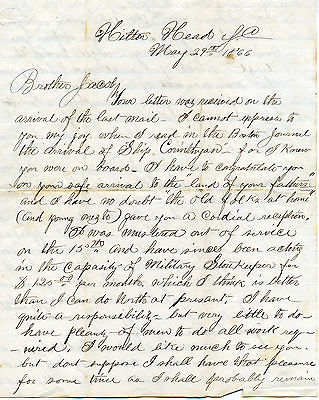 Hilton Head S.C.
May 29th 1866
Brother Jacob,
Your letter was received on the
arrival of the last mail - I cannot express to
you my joy when I read in the Boston Journal
the arrival of Ship - for I knew
you were on board - I have to congratulate you
on your safe arrival to the "land of your fathers"
and I have no doubt the old folks at home
(and young ones to) gave you a cordial reception.
I was mustered out of service
on the 15th and have since been acting
in the capasity of Military Storekeeper for
$125.00 per month, which I think is better
than I can do North at present, I have
quite a responsibility - but very little to do -
have pleanty of men to do all work req-
uired, I would like much to see you.
but dont suppose I shall have that pleasure
for some time as I shall probably remain